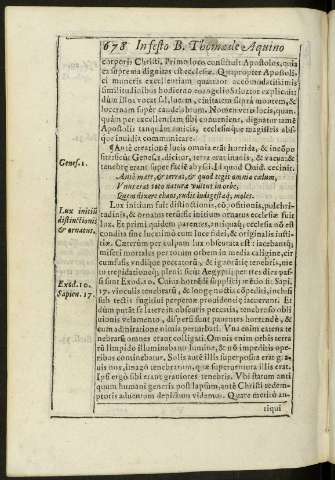 678 In festo B. Thomæ de Aquino
corporis Christi. Primo loco constituit Apostolos, quia
ea suprema dignitas est ecclesiæ. Quapropter Apostoli-
ci muneris excellentiam quatuor accommodatissimis
similitudinibus hodierno euangelio Saluator explicuit:
dum illos vocat sal, lucem, ciuitatem supra montem, &
lucernam super candelabrum. Nomen lucis, quamuis
quàm per excellentiam sibi conueniens, dignatur tamẽ
Apostolis tanquam amicis, ecclesiæque magistris abs-
que inuidia communicare.
¶Ante creationẽ lucis omnia erãt horrida, & incõpo
sita: sicuti Genes. 1. dicitur, terra erat inanis, & vacua: &
tenebræ erant super faciẽ abyssi. Id quod Ouid. cecinit.
Ante mare, & terras, & quod tegit omnia cælum,
Vnus erat toto naturæ vultus in orbe,
Quem dixere chaos, rudis indigestaq́; moles.
Lux initium fuit distinctionis, cõpositionis, pulchri-
tudinis, & ornatus terrestris: initium ornatus ecclesiæ fuit
lux. Et primi quidem parentes, antiquaq́; ecclesia fun-
dati sine lumine non sunt: sed luce fidei, & originalis iusti-
tiæ. Cæterùm per culpam lux obscurata est: iacebantq́;
miseri mortales per totum orbem in mediis caligine, cir
cumfusis vndique peccatorũ, & ignorãtiæ tenebris, me-
tu trepidationeq́; pleni: sicut Aegyptij per tres dies pas-
si sunt Exod. 10. Cuius horrẽdi supplicij mẽtio fit Sapi.
17. vinculis tenebrarũ, & longæ noctis cõpediti, inclusi
sub tectis fugitiui perpetuæ prouidentiæ iacuerunt. Et
dum putãt se latere in obscuris peccatis, tenebroso obli
uionis velamento, dispersi sunt pauentes horrendè, &
cum admiratione nimia perturbati. Vna enim catena te
nebrarũ omnes erant colligati. Omnis enim orbis terra
rũ limpido illuminabatur lumine, & nõ impeditis ope-
ribus continebatur. Solis autẽ illis superposita erat gra-
uis nox, imago tenebrarum, quæ superuentura illis erat.
Ipsi ergò sibi erant grauiores tenebris. Vbi statum anti
quum humani generis post lapsum, ante Christi redem-
ptoris aduentum depictum vidamus. Quare meritò an-
tiqui
Genes. 1.
Lux initiũ
distinctionis
& ornatus.
Exod. 10.
Sapien. 17.